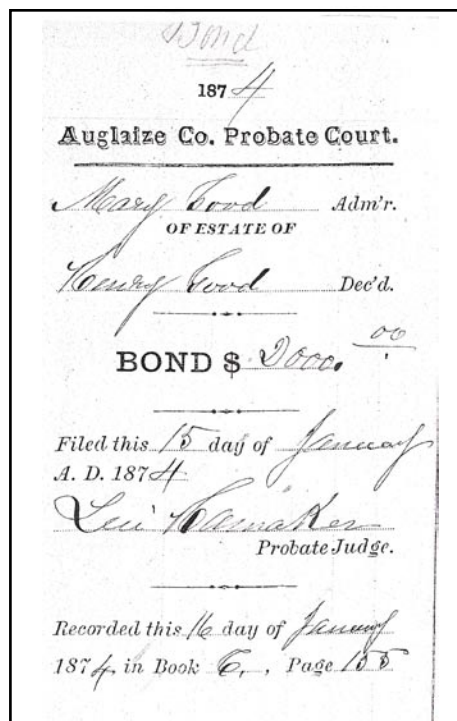 Bond
1874
Auglaize Co. Probate Court.
Mary Good Adm'r.
OF ESTATE OF
Henry Good Dec'd.
BOND $ 2000.00
Filed this 15 day of January
A. D. 1874
Levi Hamaker
Probate Judge.
Recorded this 16 day of January
1874 in Book C, , Page 155